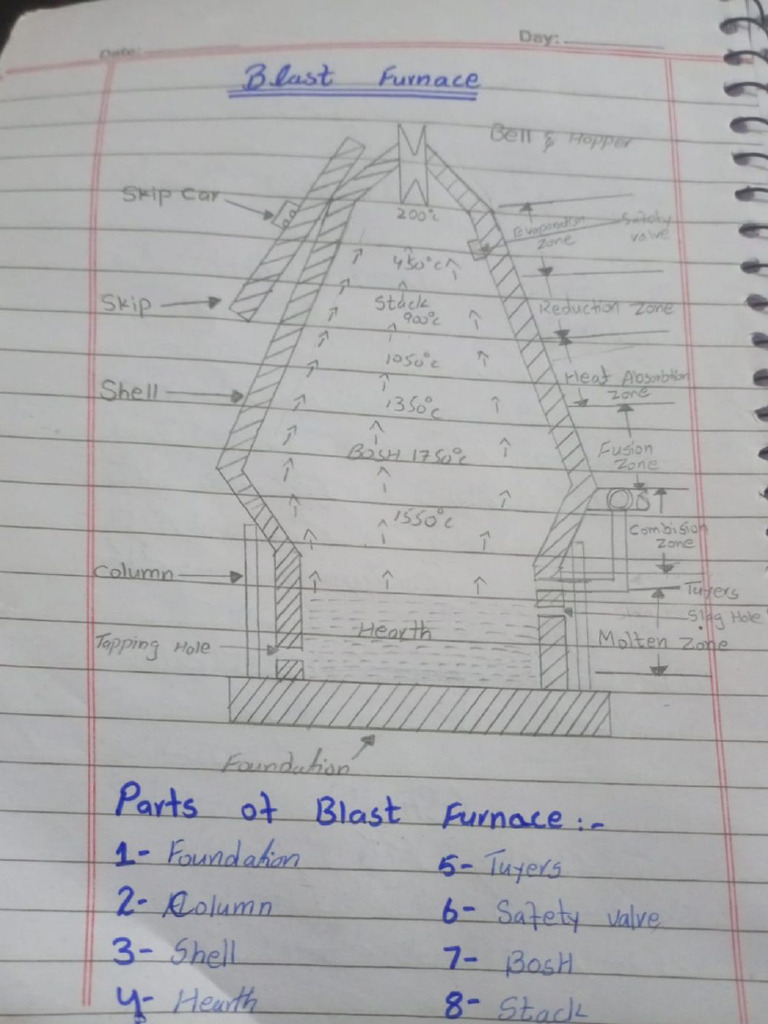 Date:
Day:
Blast Furnace
Bell & Hopper
Skip Car
200°c
Evaporation zone
Safety valve
450°c
Skip
Stack
900°c
Reduction Zone
1050°c
Heat Absorbtion
zone
Shell
1350°c
BOSH 1750°c
Fusion
Zone
1550°c
Combision
Zone
Column
Tuyers
Slag Hole
Hearth
Tapping Hole
Molten Zone
Foundation
Parts of Blast Furnace:-
1- Foundation
5- Tuyers
2- Column
6- Safety valve
3- Shell
7- BosH
4- Hearth
8- Stack